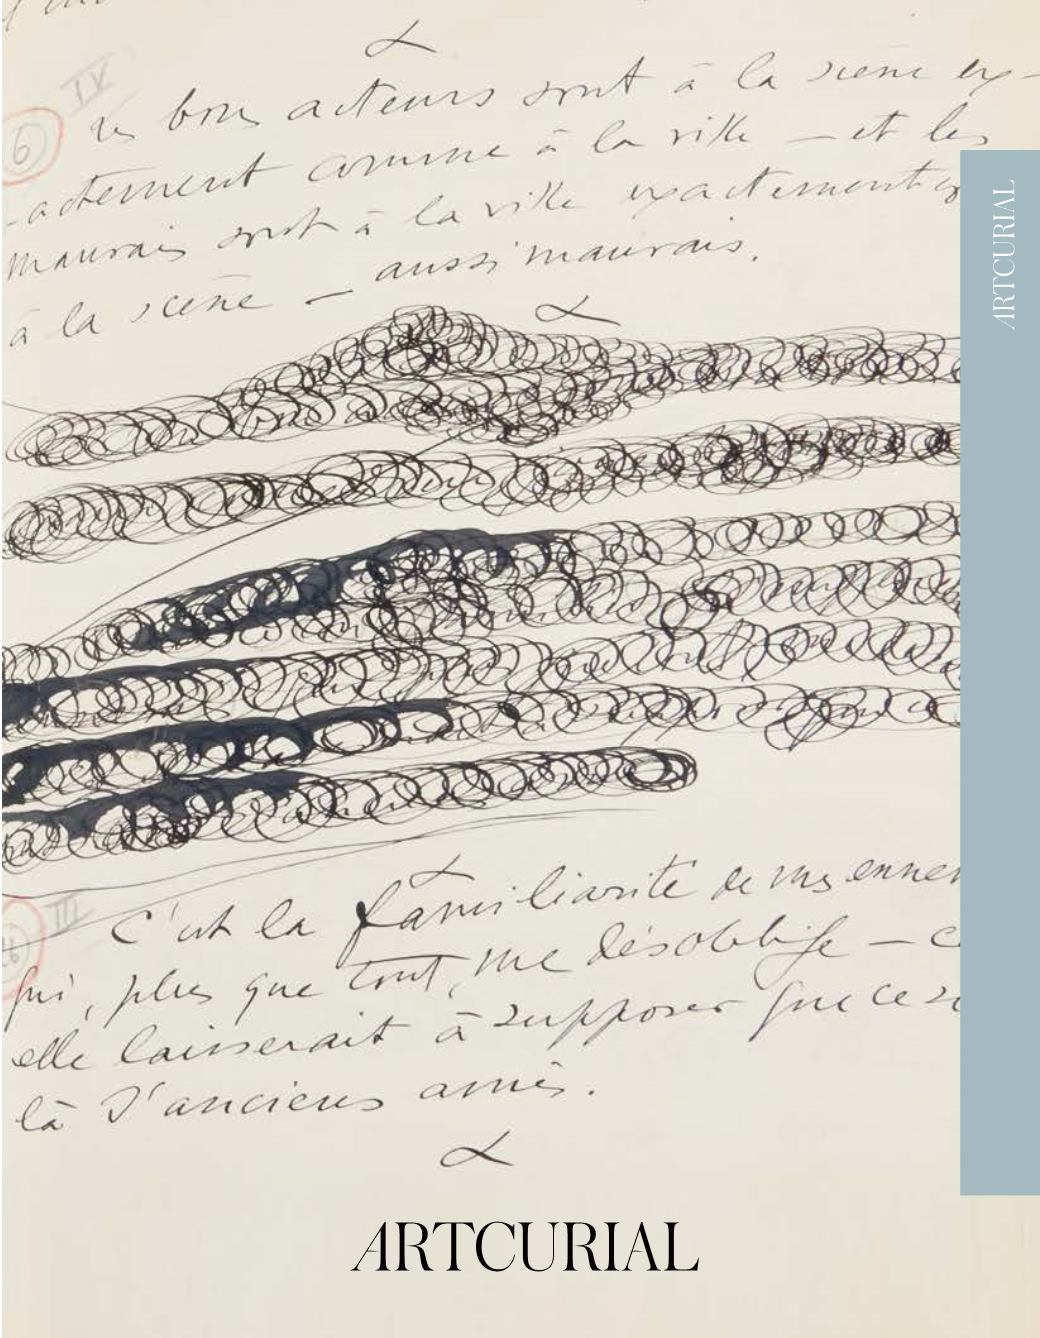 IV
6
les bons acteurs sont à la scène ex-
-actement comme à la ville – et les
mauvais sont à la ville exactement
à la scène – aussi mauvais.
III
26
C'est la familiarité de mes
qui, plus que tout, me désoblige –
elle laisserait à supposer que ce
là d'anciens amis.
ARTCURIAL
ARTCURIAL